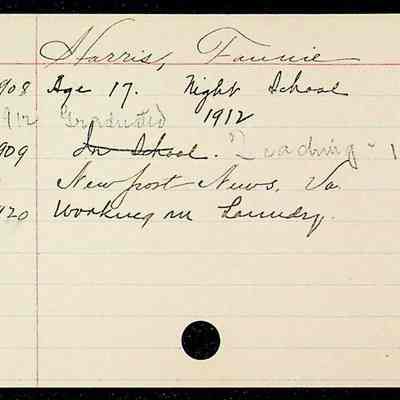 Harris, Fannie
908 Age 17. Night School
912 Graduated 1912
909 In School. "Teaching" - 1
Newport News, Va.
920 Working in Laundry.